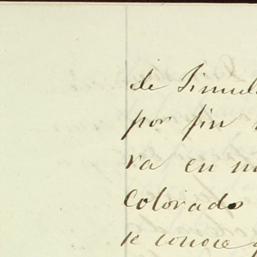 de
por fin
va en
Colorado
se conoce